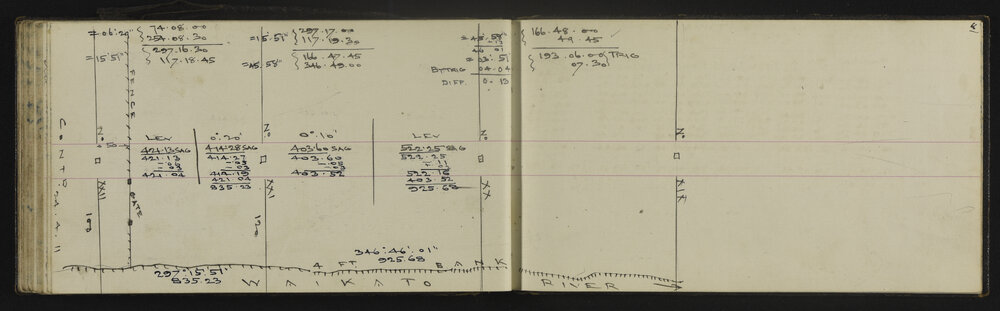 = 06'.20"
74.08.00
254.08.30
297.16.30
117.18.45
= 15'51"
= 15'.51"
297.17.00
117.19.30
166.47.45
346.49.00
= 45'.58"
46 01
= 03'.51
BY TRIG 04.04
DIFF. 0.13
166.48.00
49.45
193.06.00 TRIG
07.30
FENCE
Nº
Nº
Nº
Nº
LEV
424.13 SAG
421.13
421.04
0°.20'
414.28 SAG
414.27
414.19
421.04
835.23
0°.10'
403.60 SAG
403.60
403.52
LEV
522.25 SAG
522.25
522.16
403.52
925.68
XXII
XXI
XX
XIX
GATE
100
100
346°.46'.01"
925.68
297°15'.51"
835.23
4 FT BANK
WAIKATO RIVER